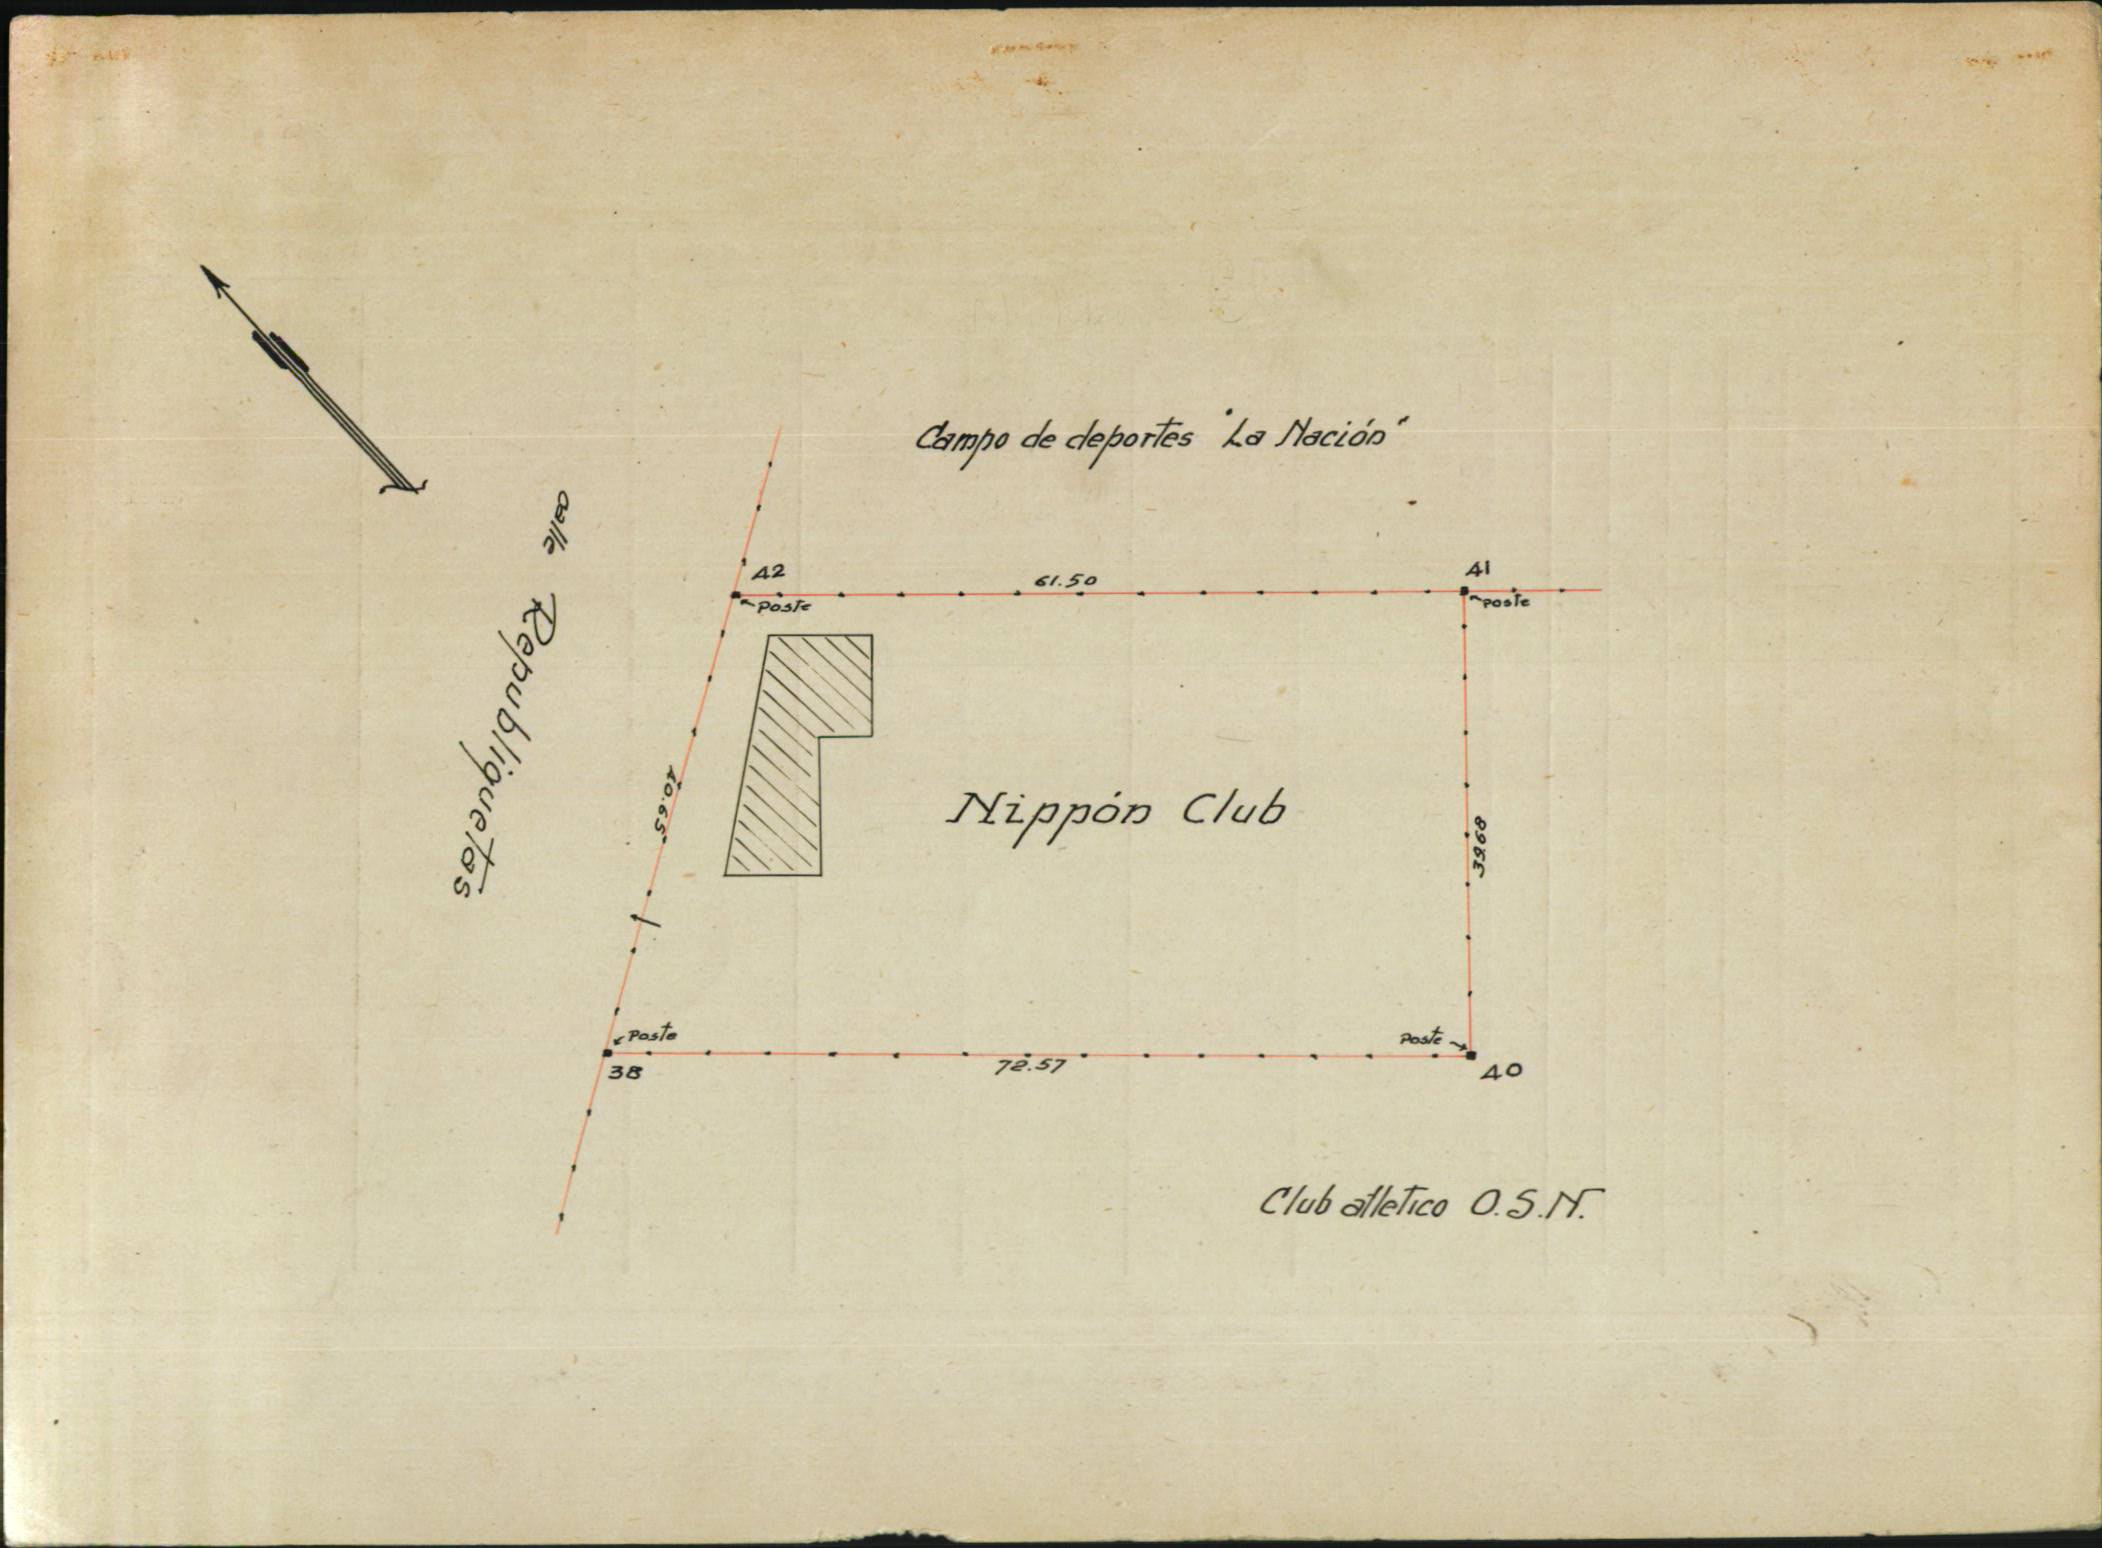 Campo de deportes "La Nación"
calle Republiquetas
42
Poste
61.50
41
Poste
40.65
Nippón Club
39.68
Poste
38
72.57
Poste
40
Club atletico O.S.N.